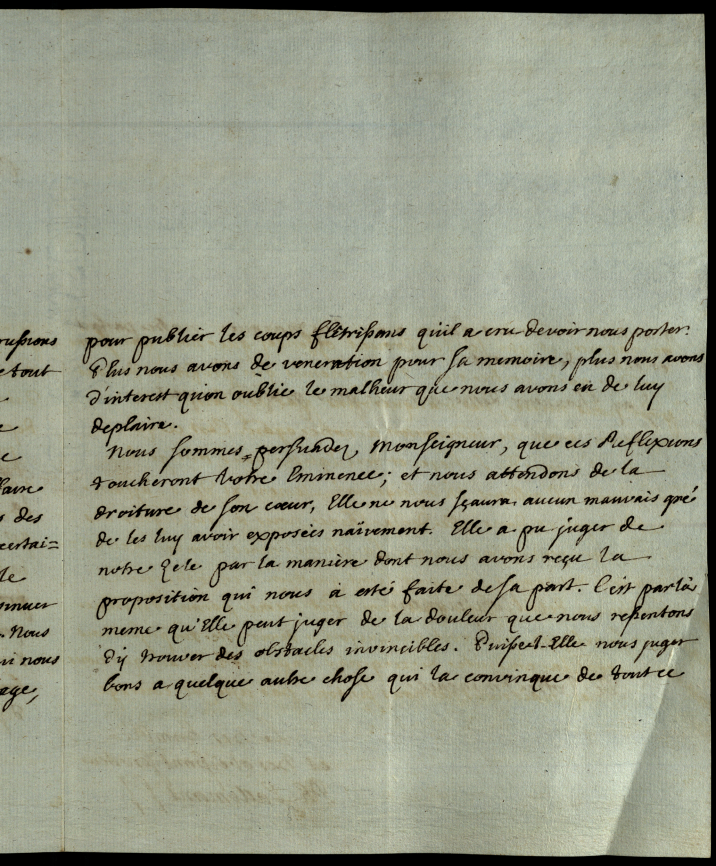 pour publier les coups flétrissans qu'il a cru devoir nous porter.
Plus nous avons de veneration pour sa memoire, plus nous avons
d'interest qu'on oublie le malheur que nous avons eu de luy
deplaire.
Nous sommes persuadez, Monseigneur, que ces Reflexions
toucheront Votre Eminence; et nous attendons de la
droiture de son cœur, Elle ne nous sçaura aucun mauvais gré
de les luy avoir exposées naïvement. Elle a pu juger de
notre zele par la manière dont nous avons reçu la
proposition qui nous à esté faite de sa part. C'est par là
meme qu'Elle peut juger de la douleur que nous ressentons
d'ÿ trouver des obstacles invincibles. Puisse-t-Elle nous juger
bons a quelque autre chose qui la convinque de tout ce
russions
e tout
e
e
e
faire
s des
certai=
le
. Nous
ui nous
age,